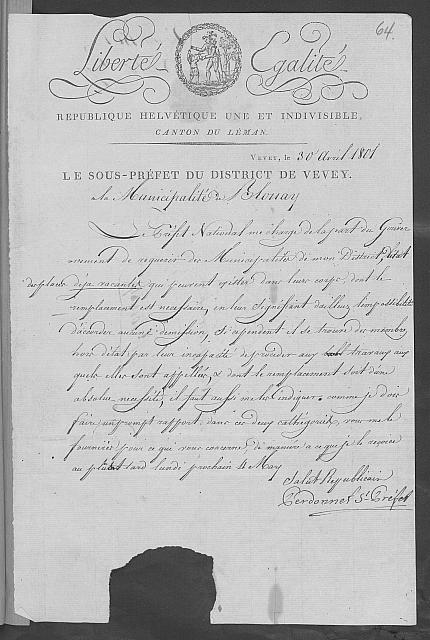 64.
Liberté Egalité
REPUBLIQUE HELVÉTIQUE UNE ET INDIVISIBLE,
CANTON DU LÉMAN.
VEVEY, le 30 Avril 1801
LE SOUS-PRÉFET DU DISTRICT DE VEVEY.
a la Municipalité de Blonay
Le Préfet National me charge de la part du Gouver
nement de requerir des Municipalités de mon District l'état
des places déja vacantes qui peuvent exister dans leurs corps, dont le
remplacement est necessaire, en leur signifiant dailleurs l'impossibilité
d'accorder aucune demission, Si cependant il se trouve des membres
hors d'état par leur incapacité de proceder aux travaux aux
quels elles sont appellées, & dont le remplacement soit d'une
absolue necessité, il faut aussi me les indiquer. comme je dois
faire un prompt rapport, dans ces deux cathégories, vous me le
fournirés pour ce qui vous concerne, de maniere a ce que je le reçoive
au plus tard lundi prochain 4 May
Salut Republicain
Perdonnet S. Préfet